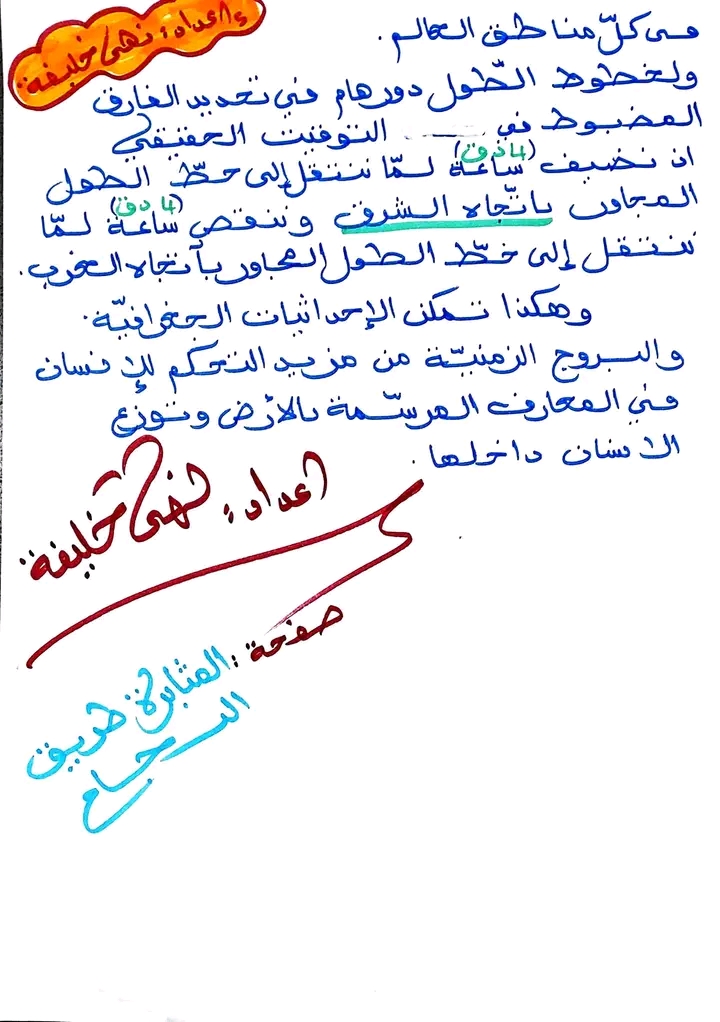 إعداد: نهى خليفة
في كلّ مناطق العالم.
ولخطوط الطّول دور هام في تحديد الفارق
المضبوط في التوقيت الحقيقي
اذ نضيف ساعة (4 دق) لمّا ننتقل إلى خطّ الطول
المجاور باتّجاه الشرق وننقص ساعة (4 دق) لمّا
ننتقل إلى خطّ الطول المجاور بآتجاه الغرب.
وهكذا تمكن الإحداثيات الجغرافيّة.
والبروج الزمنيّة من مزيد التحكم للإنسان
في المعارف المرسّمة بالأرض وتوزع
الانسان داخلها.
اعداد: نهى خليفة
صفحة: المثابرة طريق
النجاح